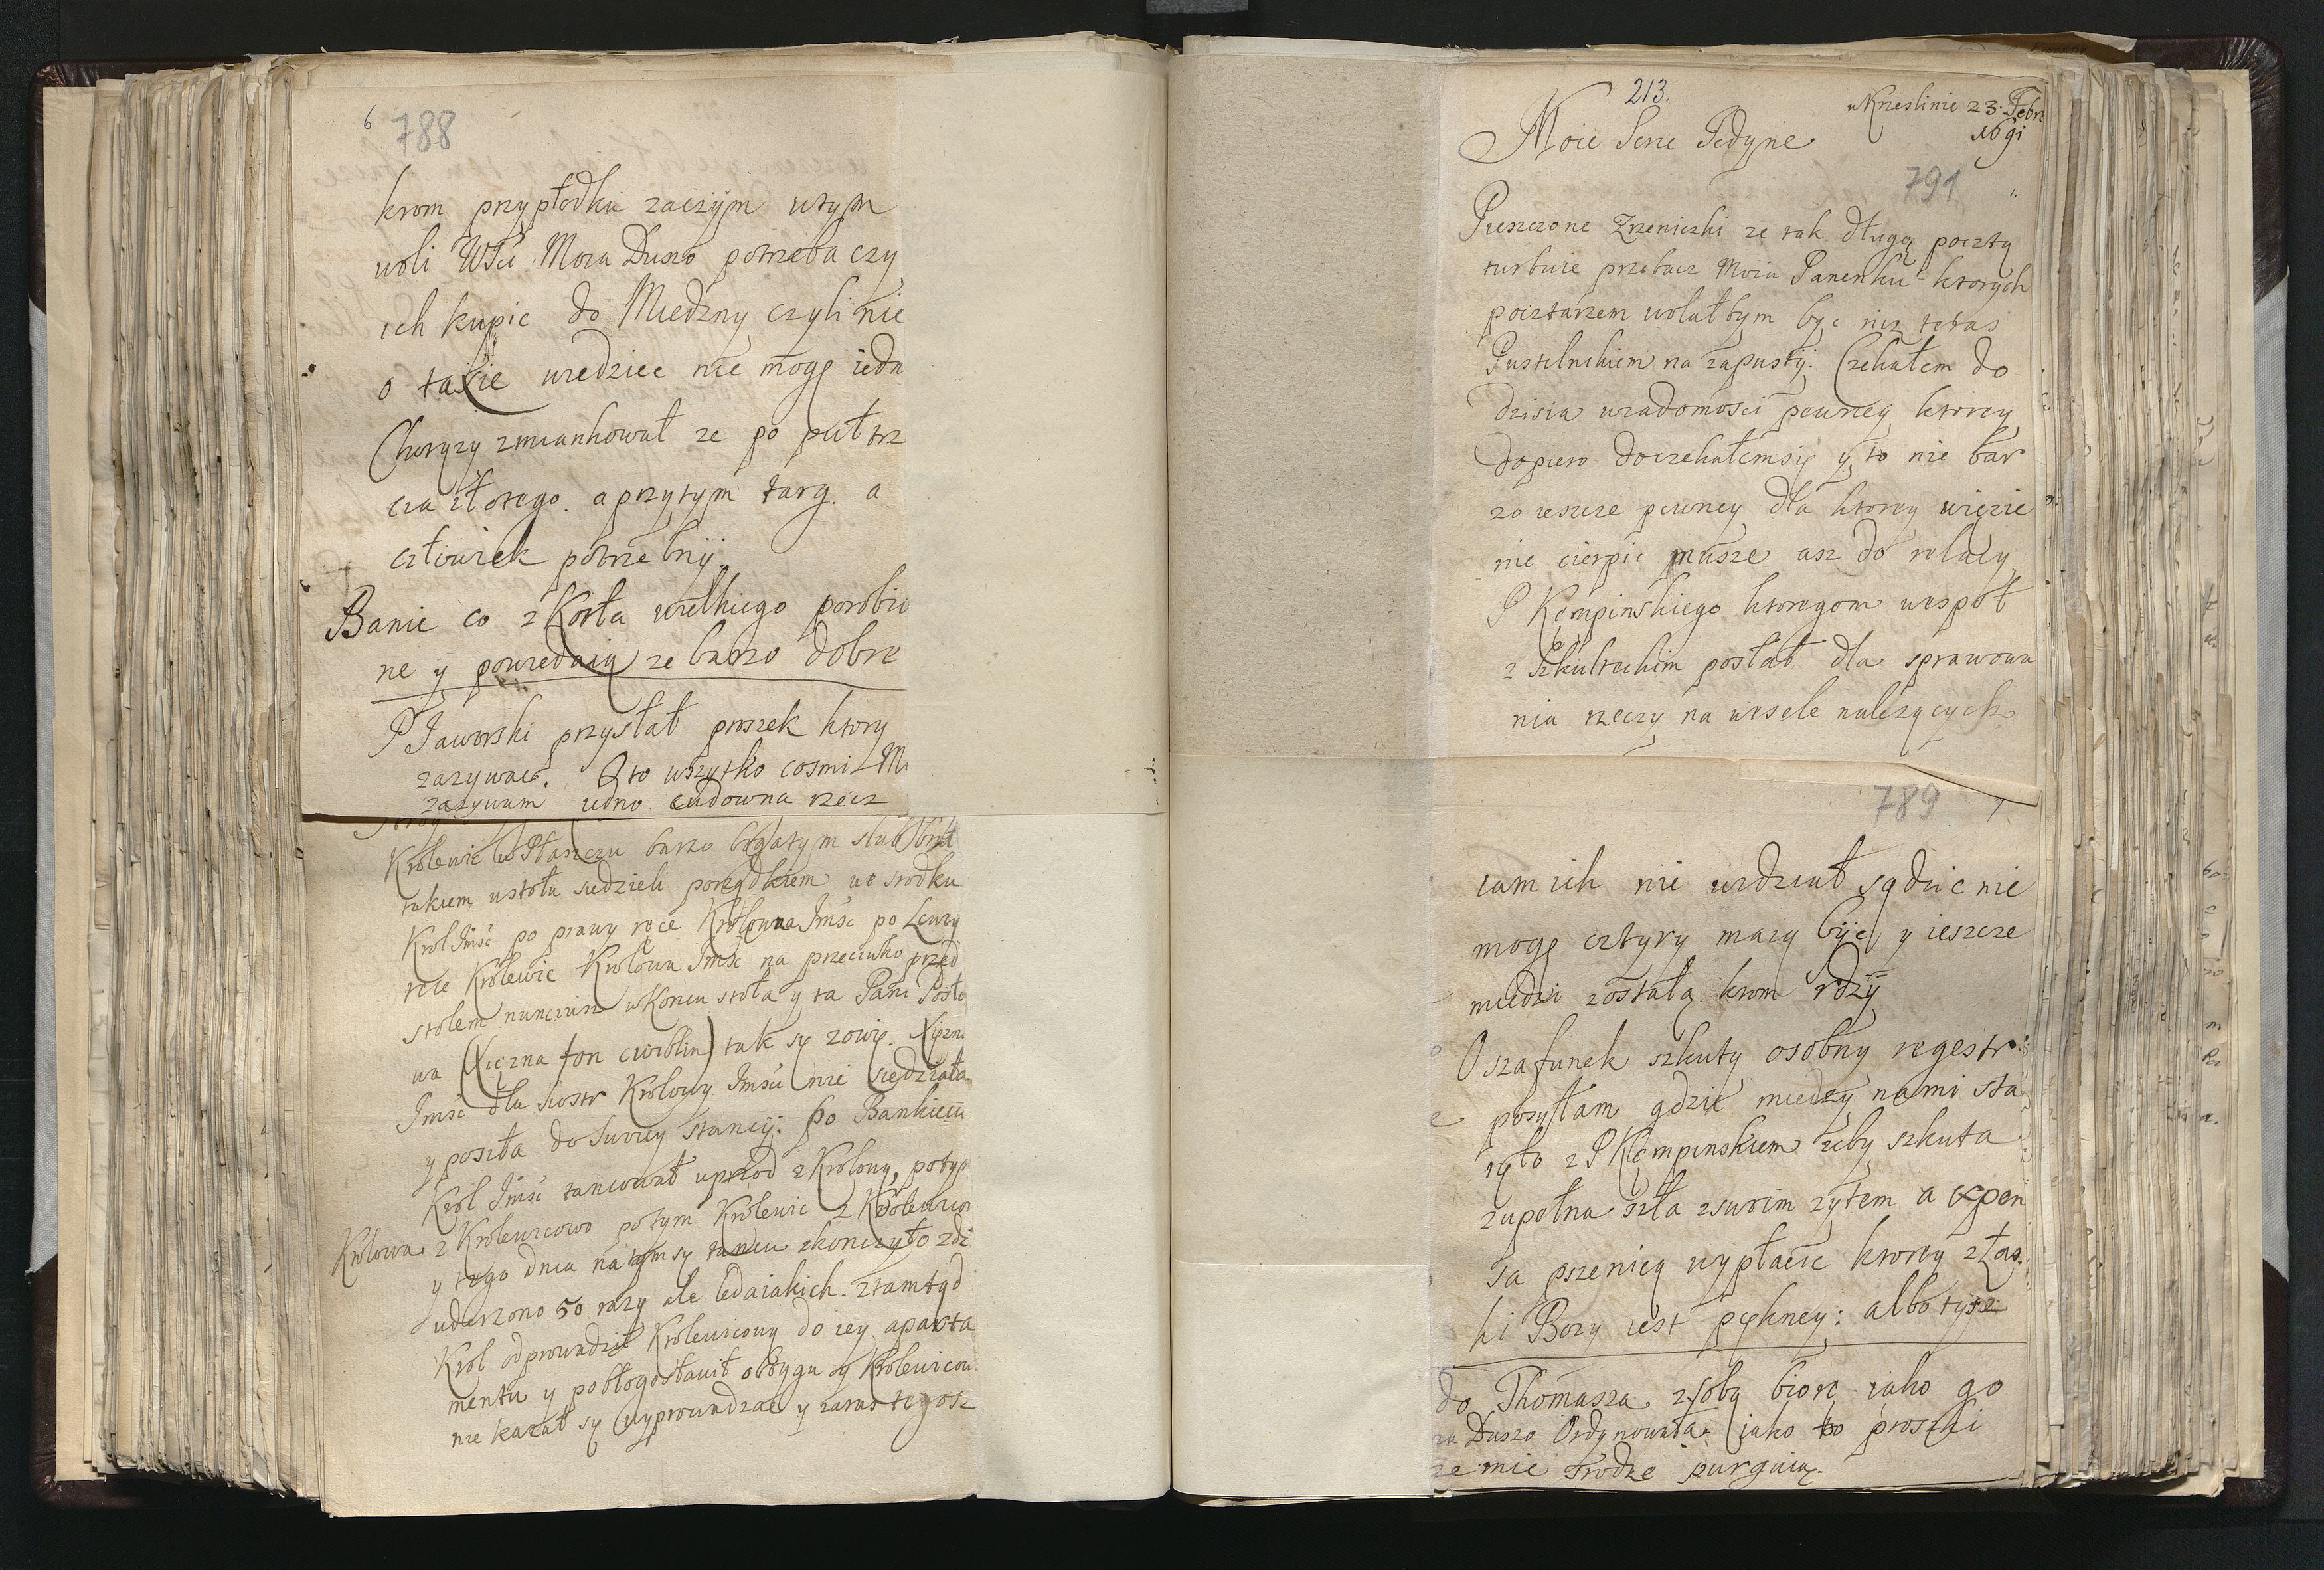 6 788
krom przypłodku zaczym wtym
woli WSci Moia Duszo potrzeba czy
ich kupic do Miedzny czyli nie
o tasie wiedziec nie mogę iedn
Chorązy zmiankował ze po puł trz
cia złotego. a przytym targ. a
człowiek potrzebnÿ
Banie co z Kotła wielkiego porobio
ne y powiedaią ze barzo dobre
P Jaworski przysłał proszek ktory
zazywac. Oto wszytko cosmi
zazywam iedno cudowna rzecz
Krolewic w Płaszczu barzo bogatym slub brał
takiem ustołu siedzieli porządkiem wo srodku
Krol Jmsc po prawy ręce Krolowna Jmsc po Lewy
ręce Krolewic Krolowa Jmsc na przeciwko przed
stolem nunciusz wKoncu stoła y ta Pani Posło
wa Xięzna fon cwiblin tak sy zowie. Xięzna
Jmsc dla siostr Krolowy Jmsci nie siedziała
y poszła do swoiey stancÿ. po Bankiecie
Krol Jmsc tancował uprzod z Krolową, potym
Krolowa z Krolewicowo potym Krolewic z Krolewicow
y tego dnia natym sy tancu skonczyło zdz
uderzono 50 razy ale ledaiakich. ztamtąd
Krol odprowadził Krolewicową do iey aparta
mentu y pobłogosławił oboygu y Krolewicow
nie kazał sy wyprowadzac y zaras tegosz
213.
w Krzeslinie 23. Febr
1691
Moie Serce Jedyne
791
Pieszczone Zrzeniczki ze tak długą pocztą
turbuie przebacz Moia Panienku ktorych
pocztarzem wolałbym byc niz teras
Pustelnikiem na zapustÿ. Czekałem do
dzisia wiadomosci pewney ktorey
dopiero doczekałemsię y to nie bar
zo iescze pewney dla ktorey więzie
nie cierpic musze asz do relacy
P Kempinskiego ktoregom wespoł
z Szkulteckim posłał dla sprawowa
nia rzeczy na wesele nalezących
789
iam ich nie widział sądzic nie
mogę cztyry mazy bÿc y ieszcze
miedzi zostało krom rdzÿ
O szafunek szkuty osobny regestr
posyłam gdzie miedzy nami sta
ręło z P Kempinskiem zeby szkuta
zupełna szła zswoim zytem a expen
sa pszenicą wypłacic ktorey złas
ki Bozy iest pękney: albo tysz
do Thomasza zsobą biorę iako go
Duszo Ordynowała. iako to proszki
ze mie srodze purguią.